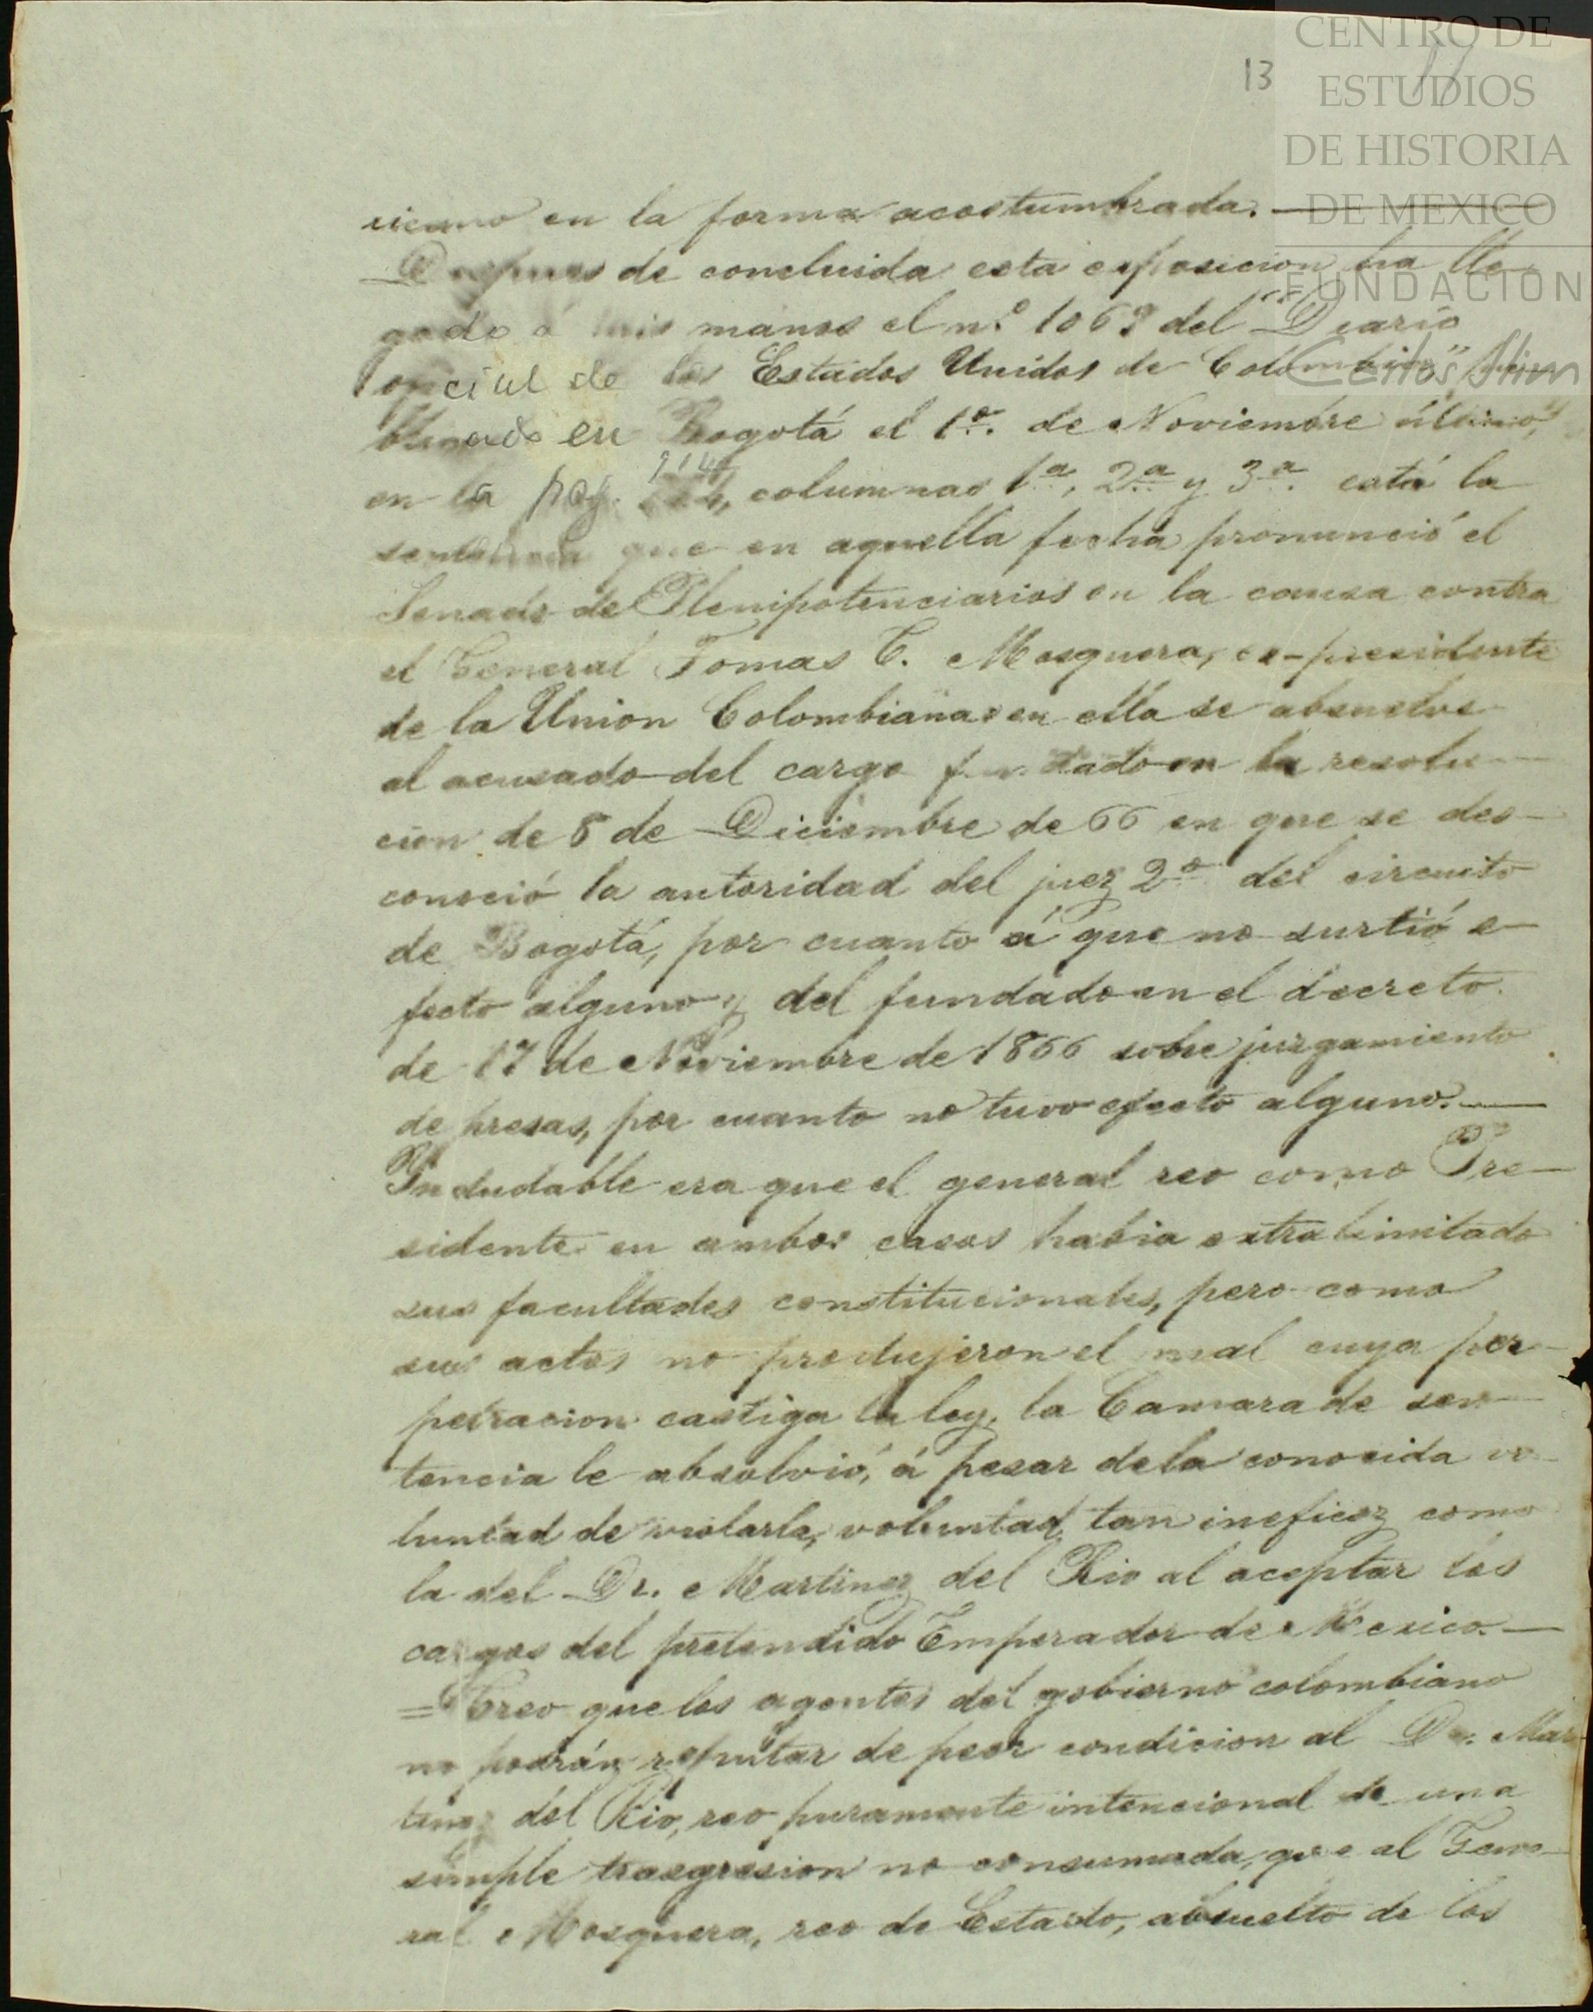 13
CENTRO DE
ESTUDIOS
DE HISTORIA
DE MEXICO
FUNDACIÓN
Carlos Slim
ricano en la forma acostumbrada.
Despues de concluida esta esposicion ha lle-
gado á mis manos el n.º 1069 del "Diario
oficial de los Estados Unidos de Colombia" pu-
blicado en Bogotá el 1º. de Noviembre último,
en la pag. 914, columnas 1ª, 2ª y 3ª. está la
sentencia que en aquella fecha pronunció el
Senado de Plenipotenciarios en la causa contra
el General Tomas C. Mosquera, ex-presidente
de la Union Colombiana: en ella se absuelve
al acusado del cargo fundado en la resolu-
cion de 8 de Diciembre de 66 en que se des-
conoció la autoridad del juez 2º del circuito
de Bogotá, por cuanto á que no surtió e-
fecto alguno y del fundado en el decreto
de 17 de Noviembre de 1866 sobre juzgamiento
de presas, por cuanto no tuvo efecto alguno.
Indudable era que el general reo como Pre-
sidente en ambos casos habia extralimitado
sus facultades constitucionales, pero como
sus actos no produjeron el mal cuya per-
petracion castiga la ley, la Camara de sen-
tencia le absolvió, á pesar de la conocida vo-
luntad de violarla, voluntad tan ineficaz como
la del Dr. Martinez del Rio al aceptar los
cargos del pretendido Emperador de Mexico.
=Creo que los agentes del gobierno colombiano
no podrán reputar de peor condicion al Dr. Mar-
tinez del Rio, reo puramente intencional de una
simple trasgresion no consumada, que al Gene-
ral Mosquera, reo de Estado, absuelto de los